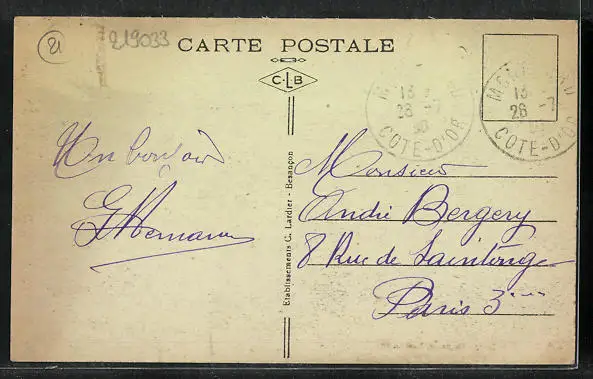 21
219033
CARTE POSTALE
C L B
Un bonjour
Etablissements C. Lardier - Besançon
Monsieur
André Bergery
8 Rue de Saintonge
Paris 3ème
13
28 -7
COTE-D'OR
13
26 -7
COTE-D'OR